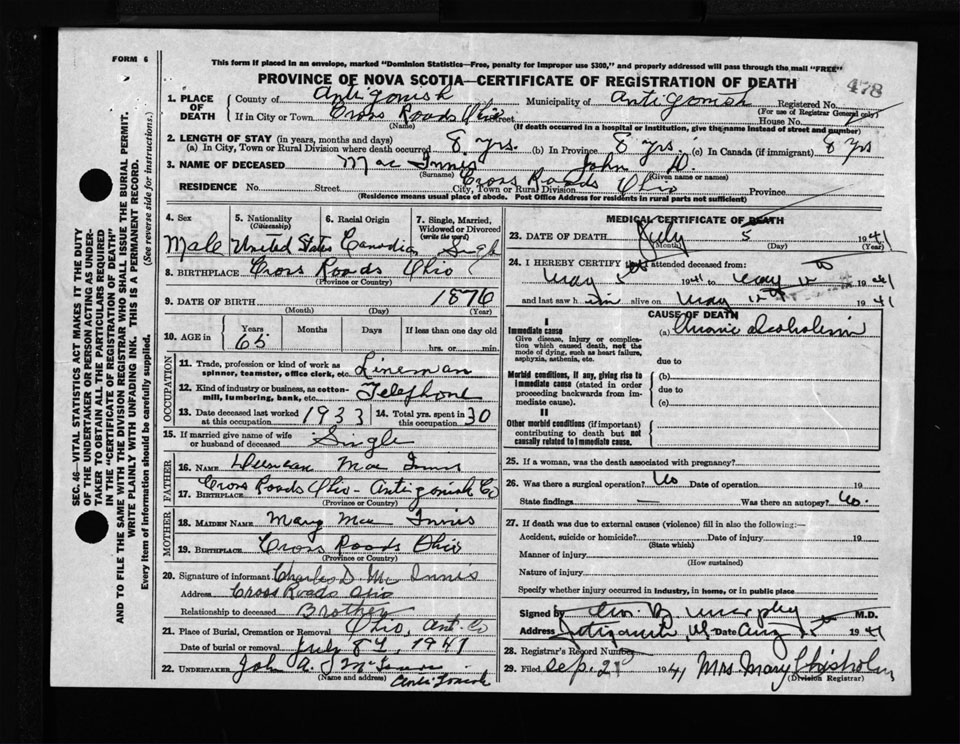 FORM 6
This form if placed in an envelope, marked "Dominion Statistics—Free, penalty for improper use $300," and properly addressed will pass through the mail "FREE"
PROVINCE OF NOVA SCOTIA—CERTIFICATE OF REGISTRATION OF DEATH
478
1. PLACE OF DEATH
County of Antigonish Municipality of Antigonish Registered No.
(For use of Registrar General only)
If in City or Town Cross Roads Ohio Street House No.
(Name) (If death occurred in a hospital or institution, give the name instead of street and number)
2. LENGTH OF STAY (in years, months and days)
(a) In City, Town or Rural Division where death occurred 8 yrs. (b) In Province 8 yrs. (c) In Canada (if immigrant) 8 yrs
3. NAME OF DECEASED Mac Innis John D.
(Surname) (Given name or names)
RESIDENCE No. Street City, Town or Rural Division Cross Roads Ohio Province
(Residence means usual place of abode. Post Office Address for residents in rural parts not sufficient)
4. Sex 5. Nationality (Citizenship) 6. Racial Origin 7. Single, Married, Widowed or Divorced (write the word)
Male United States Canadian Single
8. BIRTHPLACE Cross Roads Ohio
(Province or Country)
9. DATE OF BIRTH 1876
(Month) (Day) (Year)
10. AGE in Years Months Days If less than one day old
65 hrs. or min.
OCCUPATION
11. Trade, profession or kind of work as spinner, teamster, office clerk, etc. Lineman
12. Kind of industry or business, as cotton-mill, lumbering, bank, etc. Telephone
13. Date deceased last worked at this occupation 1933 14. Total yrs. spent in this occupation 30
15. If married give name of wife or husband of deceased Single
FATHER
16. NAME Duncan Mac Innis
17. BIRTHPLACE Cross Roads Ohio - Antigonish Co
(Province or Country)
MOTHER
18. MAIDEN NAME Mary Mac Innis
19. BIRTHPLACE Cross Roads Ohio
(Province or Country)
20. Signature of informant Charles D. Mc Innis
Address Cross Roads Ohio
Relationship to deceased Brother
21. Place of Burial, Cremation or Removal Ohio, Ant. Co
Date of burial or removal July 8th, 1941
22. UNDERTAKER John A.
(Name and address) Antigonish
MEDICAL CERTIFICATE OF DEATH
23. DATE OF DEATH July 5 1941
(Month) (Day) (Year)
24. I HEREBY CERTIFY that I attended deceased from:
May 5th 1941 to May 12 1941
and last saw him alive on May 12th 1941
CAUSE OF DEATH
I
Immediate cause (a) Chronic alcoholism
Give disease, injury or complication which caused death, not the mode of dying, such as heart failure, asphyxia, asthenia, etc.
due to
Morbid conditions, if any, giving rise to immediate cause (stated in order proceeding backwards from immediate cause).
(b)
due to
(c)
II
Other morbid conditions (if important) contributing to death but not causally related to immediate cause.
25. If a woman, was the death associated with pregnancy?
26. Was there a surgical operation? No Date of operation 19
State findings Was there an autopsy? No.
27. If death was due to external causes (violence) fill in also the following:—
Accident, suicide or homicide? Date of injury 19
(State which)
Manner of injury
(How sustained)
Nature of injury
Specify whether injury occurred in industry, in home, or in public place
Signed by Geo. B. Murphy M.D.
Address Antigonish NS Date Aug 1st 1941
28. Registrar's Record Number
29. Filed Sep. 29 1941 Mrs. Mary Chisholm
(Division Registrar)
SEC. 46—VITAL STATISTICS ACT MAKES IT THE DUTY OF THE UNDERTAKER OR PERSON ACTING AS UNDERTAKER TO OBTAIN ALL THE PARTICULARS REQUIRED IN THE "CERTIFICATE OF REGISTRATION OF DEATH" AND TO FILE THE SAME WITH THE DIVISION REGISTRAR WHO SHALL ISSUE THE BURIAL PERMIT.
WRITE PLAINLY WITH UNFADING INK. THIS IS A PERMANENT RECORD.
Every item of information should be carefully supplied. (See reverse side for instructions.)